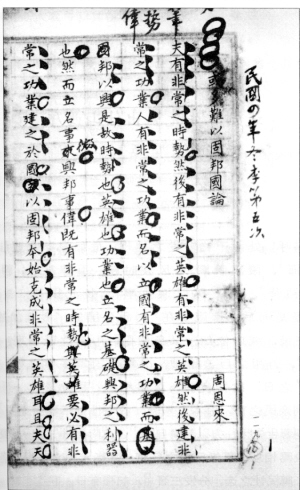 筆勢偉
民國四年冬季第五次
或多難以固邦國論
周恩來
夫有非常之時勢然後有非常之英雄有非常之英雄然後建非
常之功業人有非常之功業而名以立國有非常之功業而國
國邦以興是故時勢也英雄也功業也立名之基礎興邦之利器
也然而立名事微興邦事偉既有非常之時勢與英雄要必有非
常之功業建之於國以固邦本始克成非常之英雄耳且夫天